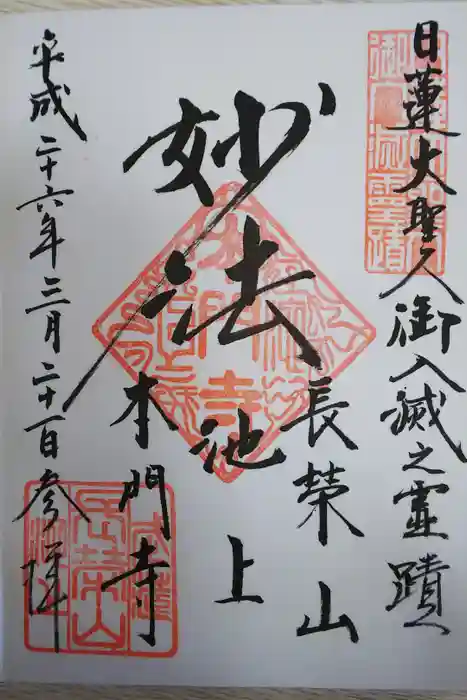 日蓮大聖人御入滅之靈蹟
妙法
長榮山
池上
本門寺
平成二十六年三月二十一日参拝